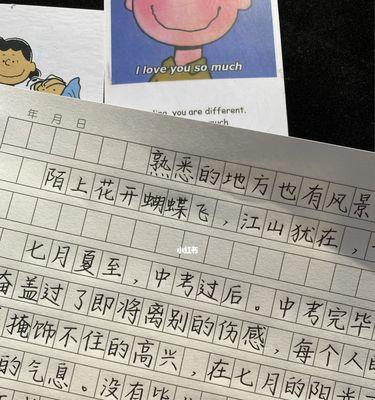 I love you so much
you are different.
年 月 日
熟悉的地方也有风景
陌上花开蝴蝶飞，江山犹在，
小红书
七月夏至，中考过后。中考完毕
盖过了即将离别的伤感，每个人
掩饰不住的高兴，在七月的阳
的气息。没有